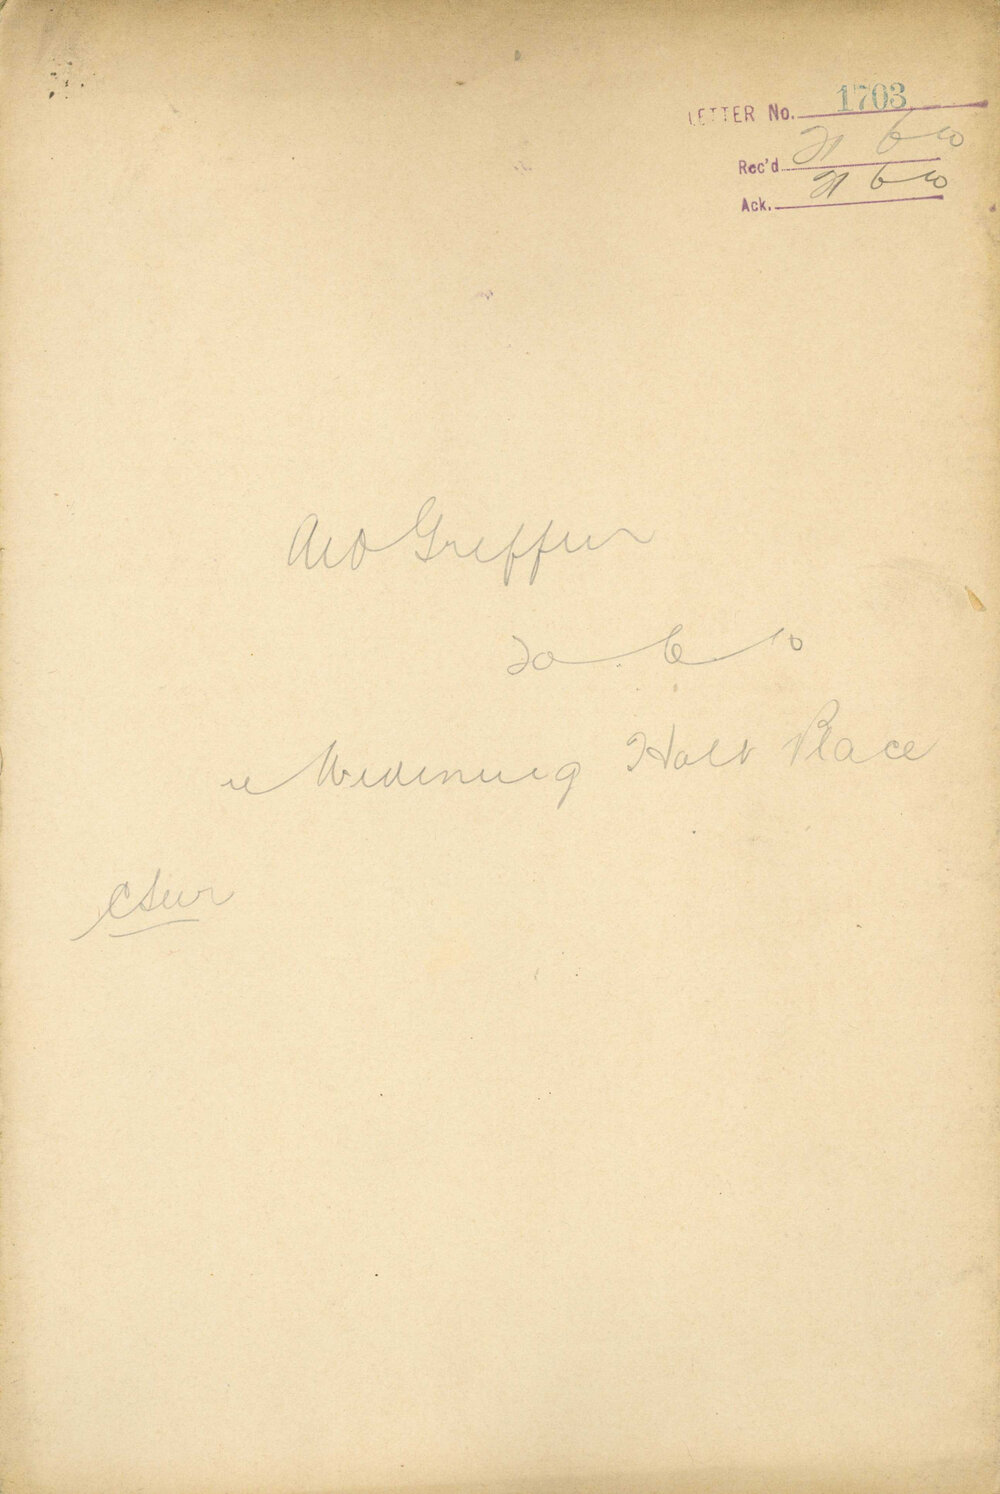 LETTER No. 1703
Rec'd 21 6 10
Ack. 21 6 10
Griffin
20 6 10
re Widening Holt Place